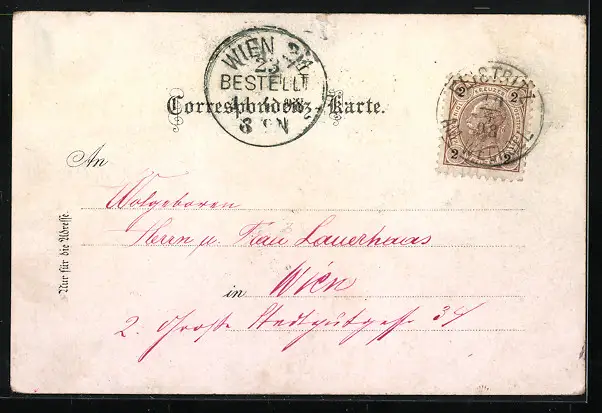 WIEN 2/1
23
BESTELLT
8 9N
Correspondenz-Karte.
2 KREUZER 2
2 2
98
An
Wolgeboren
Herrn u. Frau Lauerhaas
in Wien
2. Große Stadtgutgasse 34
Nur für die Adresse.